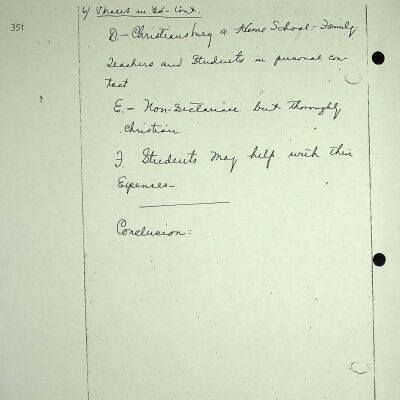 351
in Ed - Cont.
D. - Christiansburg a Home School - Family
Teachers and Students in personal con-
tact
E. - Non-Sectarian but thoroughly
Christian
F. Students may help with their
Expenses -
Conclusion: